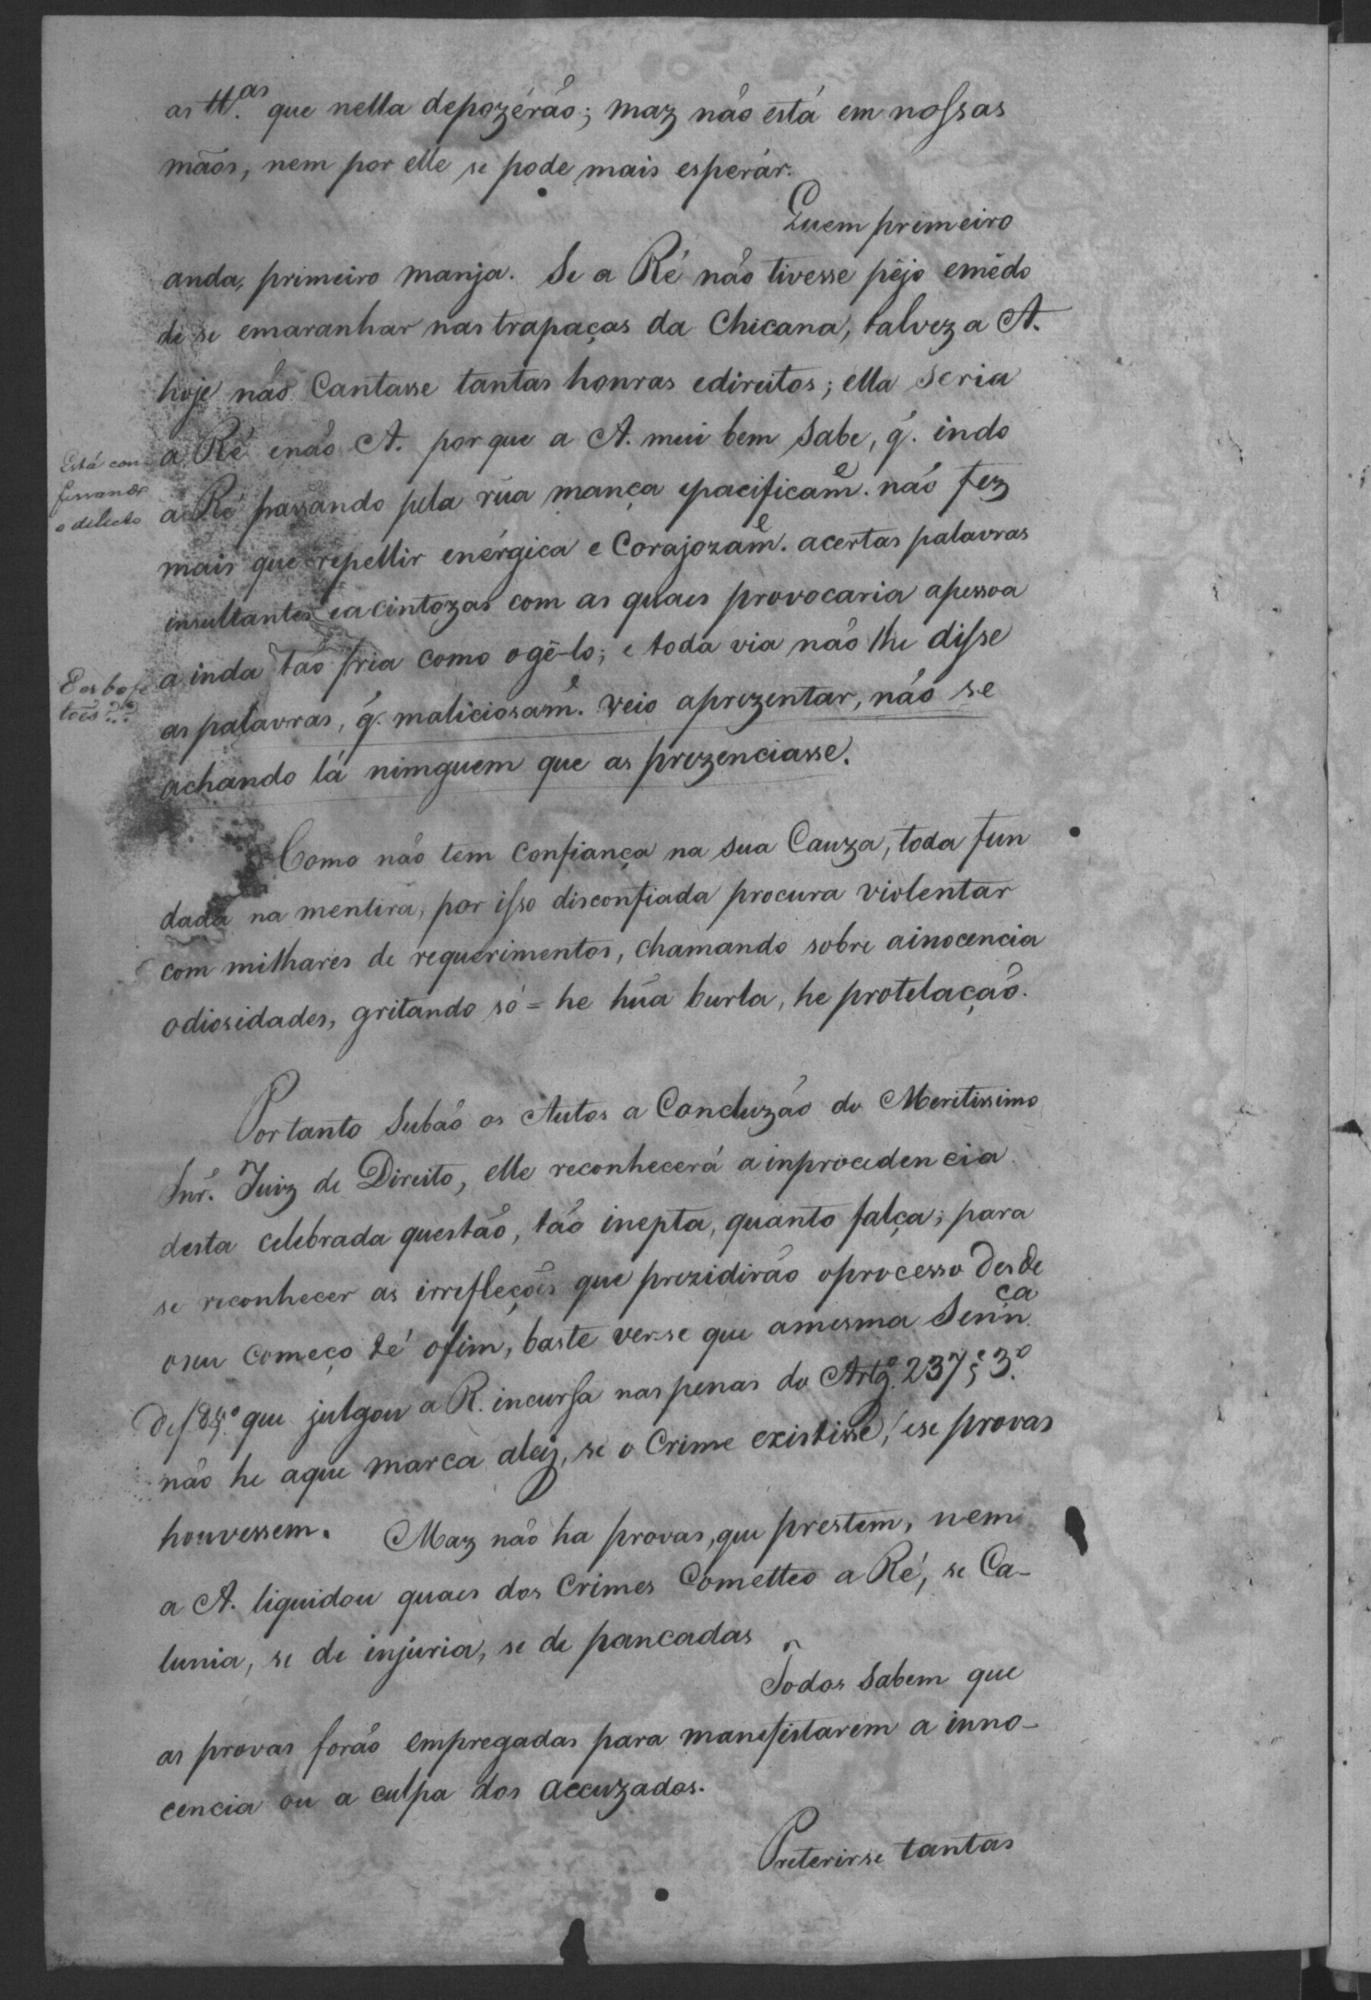 as tt.as que nella depozérão; maz não está em nossas
mãos, nem por elle se pode mais esperár.
Quem primeiro
anda, primeiro manja. Se a Ré não tivesse pêjo emêdo
de se emaranhar nas trapaças da Chicana, talvez a A.
hoje não Cantasse tantas honras edireitos; ella seria
a Ré enão A. porque a A. mui bem Sabe, q. indo
Está con
fessando
o delicto
a Ré passando pela rúa mança epacificam.e não fez
mais que repellir enérgica e Corajozam.e acertas palavras
insultantes eacintozas com as quaes provocaria apessoa
ainda tão fria como ogê-lo; e toda via não lhe disse
E os bofe
tões??
as palavras, q. maliciosam.e veio aprezentar, não se
achando lá nimguem que as prezenciasse.
Como não tem Confiança na sua Cauza, toda fun
dada na mentira, por isso disconfiada procura violentar
com milhares de requerimentos, chamando sobre ainocencia
odiosidades, gritando só = he húa burla, he protelação.
Portanto Subão os Autos a Concluzão do Meritissimo
Snr. Juiz de Direito, elle reconhecerá a inprocedencia
desta celebrada questão, tão inepta, quanto falça; para
se reconhecer as irrefleções que prezidirão oprocesso desde
oseu começo té ofim, baste ver-se que amesma Senn.ça
de f 85.º que julgou a R. incursa nas penas do Artg.º 237 § 3.º
não he aque marca aley, se o Crime existisse, ese provas
houvessem. Maz não ha provas, que prestem, nem
a A. liquidou quaes dos Crimes Cometteo a Ré, se Ca-
lunia, se de injuria, se de pancadas
Todos Sabem que
as provas forão empregadas para manifestarem a inno-
cencia ou a culpa dos accuzados.
Preterirse tantas